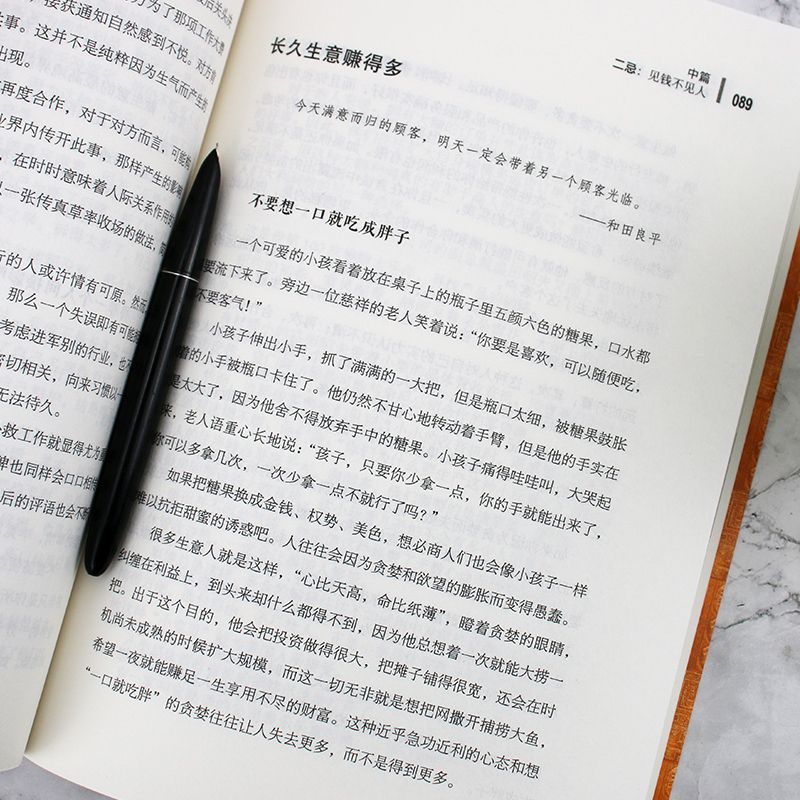 后关头没
方为了那项工作大费
接获通知自然感到不悦。对方竟
共事。这并不是纯粹因为生气而产生的
出现。
再度合作，对于对方而言，可能
业界内传开此事，那样产生的影响
，在时时意味着人际关系作用的
以一张传真草率收场的做法，
行的人或许情有可原。然而
那么一个失误即有可能
考虑进军别的行业，也不
密切相关，向来习惯以一
无法待久。
补救工作就显得尤为重
神也同样会口口相
后的评语也会不
中篇
二忌：见钱不见人
089
长久生意赚得多
今天满意而归的顾客，明天一定会带着另一个顾客光临。
——和田良平
不要想一口就吃成胖子
一个可爱的小孩看着放在桌子上的瓶子里五颜六色的糖果，口水都
要流下来了。旁边一位慈祥的老人笑着说：“你要是喜欢，可以随便吃，
不要客气！”
小孩子伸出小手，抓了满满的一大把，但是瓶口太细，被糖果鼓胀
着的小手被瓶口卡住了。他仍然不甘心地转动着手臂，但是他的手实在
是太大了，因为他舍不得放弃手中的糖果。小孩子痛得哇哇叫，大哭起
来，老人语重心长地说：“孩子，只要你少拿一点，你的手就能出来了，
你可以多拿几次，一次少拿一点不就行了吗？”
如果把糖果换成金钱、权势、美色，想必商人们也会像小孩子一样
难以抗拒甜蜜的诱惑吧。人往往会因为贪婪和欲望的膨胀而变得愚蠢。
很多生意人就是这样，“心比天高，命比纸薄”，瞪着贪婪的眼睛，
纠缠在利益上，到头来却什么都得不到，因为他总想着一次就能大捞一
把。出于这个目的，他会把投资做得很大，把摊子铺得很宽，还会在时
机尚未成熟的时候扩大规模，而这一切无非就是想把网撒开捕捞大鱼，
希望一夜就能赚足一生享用不尽的财富。这种近乎急功近利的心态和想
“一口就吃胖”的贪婪往往让人失去更多，而不是得到更多。